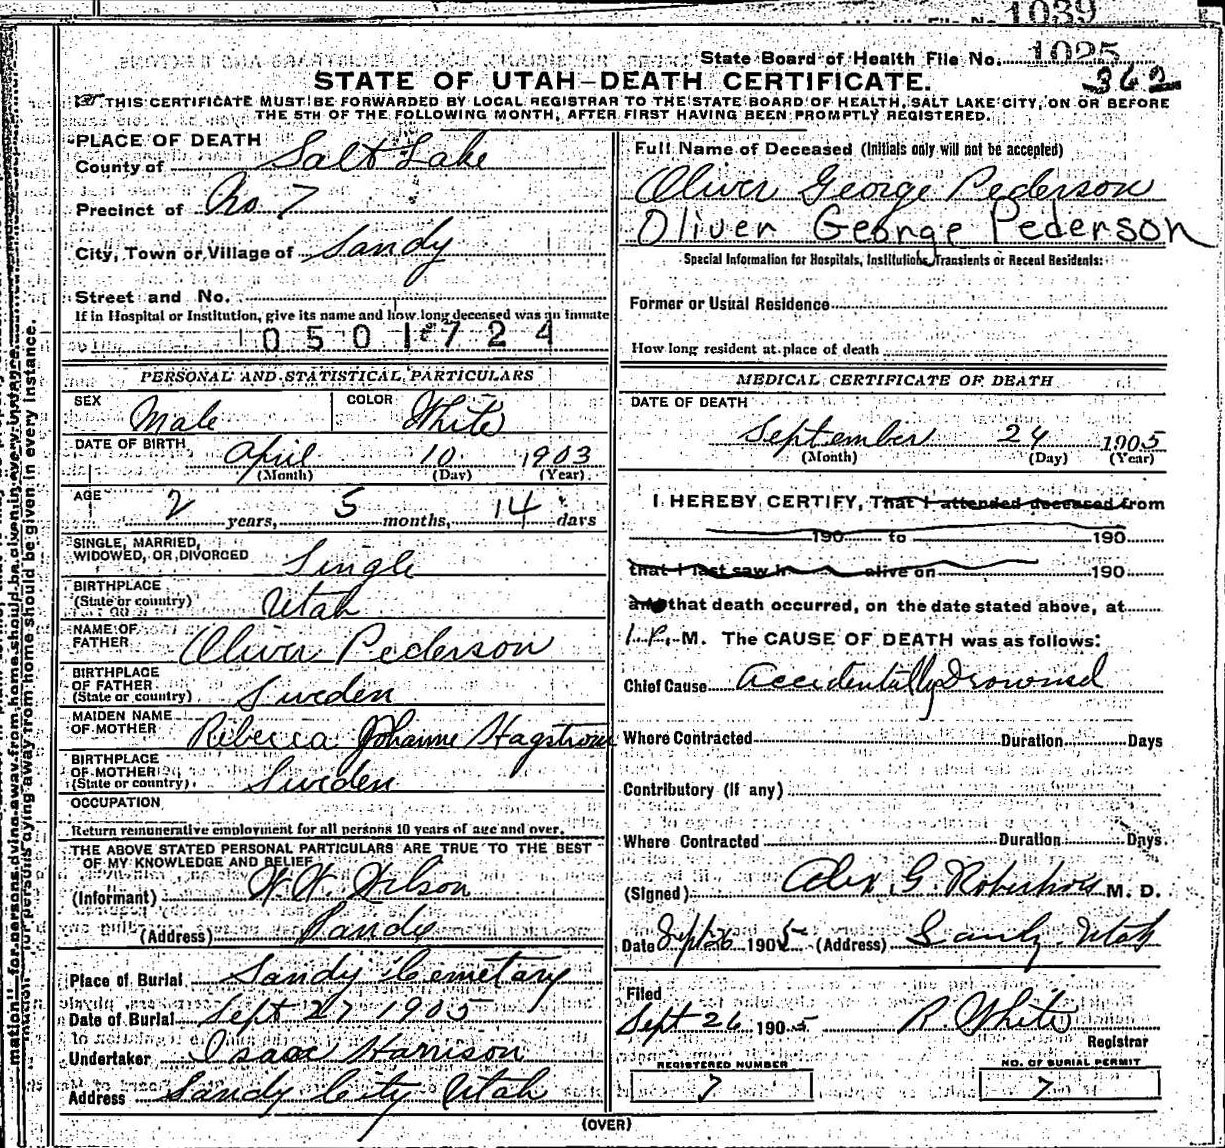 1039
State Board of Health File No. 1025
362
STATE OF UTAH—DEATH CERTIFICATE.
THIS CERTIFICATE MUST BE FORWARDED BY LOCAL REGISTRAR TO THE STATE BOARD OF HEALTH, SALT LAKE CITY, ON OR BEFORE
THE 5TH OF THE FOLLOWING MONTH, AFTER FIRST HAVING BEEN PROMPTLY REGISTERED.
PLACE OF DEATH
County of Salt Lake
Precinct of No. 7
City, Town or Village of Sandy
Street and No.
If in Hospital or Institution, give its name and how long deceased was an inmate
0501724
PERSONAL AND STATISTICAL PARTICULARS
SEX Male COLOR White
DATE OF BIRTH April 10 1903
(Month) (Day) (Year)
AGE 2 years, 5 months, 14 days
SINGLE, MARRIED,
WIDOWED, OR DIVORCED Single
BIRTHPLACE
(State or country) Utah
NAME OF
FATHER Oliver Pederson
BIRTHPLACE
OF FATHER
(State or country) Sweden
MAIDEN NAME
OF MOTHER Rebecca Johanne Hagstrom
BIRTHPLACE
OF MOTHER
(State or country) Sweden
OCCUPATION
Return remunerative employment for all persons 10 years of age and over.
THE ABOVE STATED PERSONAL PARTICULARS ARE TRUE TO THE BEST
OF MY KNOWLEDGE AND BELIEF
(Informant) W. W. Wilson
(Address) Sandy
Place of Burial Sandy Cemetary
Date of Burial Sept 27 1905
Undertaker Isaac Harrison
Address Sandy City Utah
Full Name of Deceased (Initials only will not be accepted)
Oliver George Pederson
Oliver George Pederson
Special Information for Hospitals, Institutions, Transients or Recent Residents:
Former or Usual Residence
How long resident at place of death
MEDICAL CERTIFICATE OF DEATH
DATE OF DEATH
September 24 1905
(Month) (Day) (Year)
I HEREBY CERTIFY, That I attended deceased from
190 to 190
that I last saw h alive on 190
and that death occurred, on the date stated above, at
1 P. M. The CAUSE OF DEATH was as follows:
Chief Cause Accidentally Drowned
Where Contracted Duration Days
Contributory (If any)
Where Contracted Duration Days.
(Signed) Alex. G. Robertson M. D.
Date Sept 26 1905 (Address) Sandy, Utah
Filed
Sept 26 1905 R. White
Registrar
REGISTERED NUMBER NO. OF BURIAL PERMIT
7 7
(OVER)